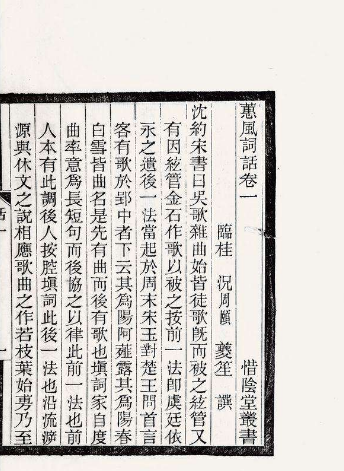 蕙風詞話卷一
惜陰堂叢書
臨桂 況周頤 夔笙 撰
沈約宋書曰吳歌雜曲始皆徒歌旣而被之絃管又
有因絃管金石作歌以被之按前一法卽虞廷依
永之遺後一法當起於周末宋玉對楚王問首言
客有歌於郢中者下云其爲陽阿薤露其爲陽春
白雪皆曲名是先有曲而後有歌也塡詞家自度
曲率意爲長短句而後協之以律此前一法也前
人本有此調後人按腔塡詞此後一法也沿流溯
源與休文之說相應歌曲之作若枝葉始旉乃至